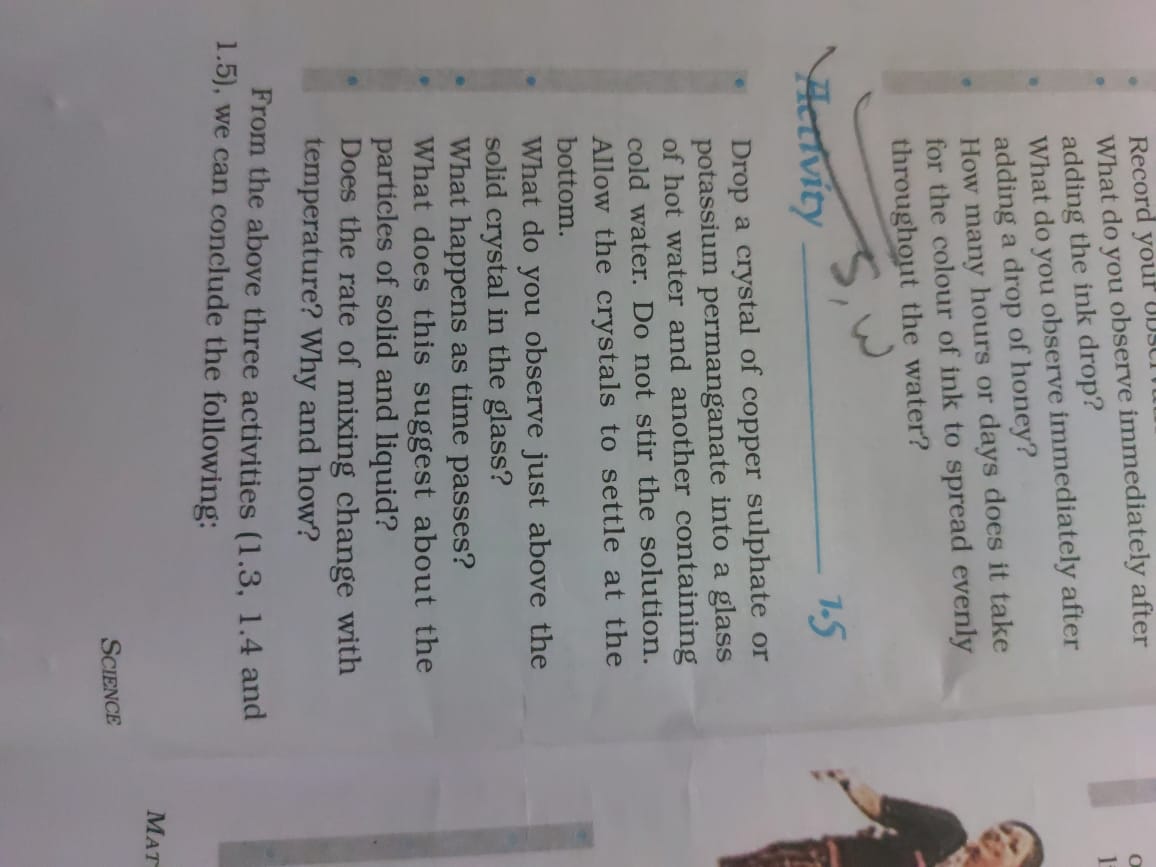 Record your
What do you observe immediately after
adding the ink drop?
What do you observe immediately after
adding a drop of honey?
How many hours or days does it take
for the colour of ink to spread evenly
throughout the water?
S, W
Activity 1.5
Drop a crystal of copper sulphate or
potassium permanganate into a glass
of hot water and another containing
cold water. Do not stir the solution.
Allow the crystals to settle at the
bottom.
What do you observe just above the
solid crystal in the glass?
What happens as time passes?
What does this suggest about the
particles of solid and liquid?
Does the rate of mixing change with
temperature? Why and how?
From the above three activities (1.3, 1.4 and
1.5), we can conclude the following:
SCIENCE
MAT